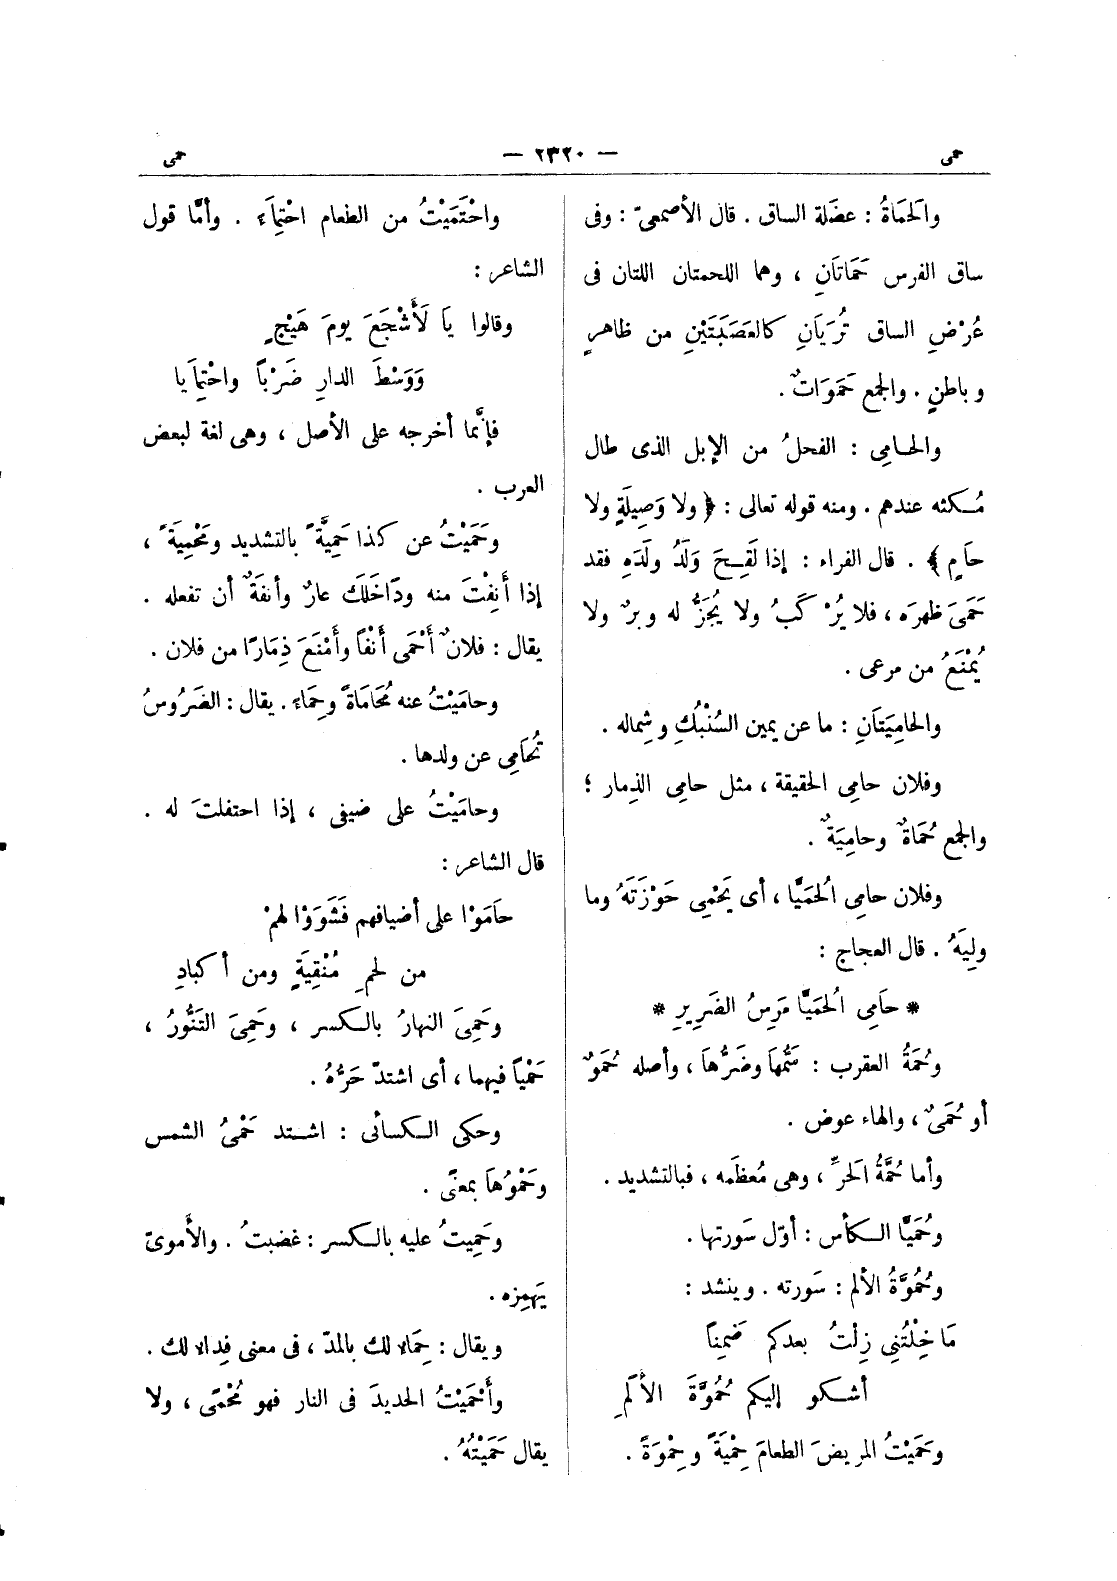 حمى — ٢٣٢٠ — حمى
والَحمَاةُ : عضَلة الساق . قال الأصمعىّ : وفى
ساق الفرس حَمَاتَانِ ، وهما اللحمتان اللتان فى
عُرْضِ الساق تُرَيَانِ كالعَصَبَتَيْنِ من ظاهرٍ
وباطنٍ . والجمع حَمَوَاتٌ .
والحامِى : الفحلُ من الإبل الذى طال
مُكثه عندهم . ومنه قوله تعالى : ﴿ ولا وَصِيلَةٍ ولا
حامٍ ﴾ . قال الفراء : إذا لَقِحَ وَلَدُ ولَدَهِ فقد
حَمَىَ ظهرَه ، فلا يُرْكَبُ ولا يُجَزُّ له وبرٌ ولا
يُمْنَعُ من مرعى .
والحامِيَتَانِ : ما عن يمين السُنْبُكِ وشِماله .
وفلان حامِى الحقيقة ، مثل حامِى الذِمار ؛
والجمع حُمَاةٌ وحامِيَةٌ .
وفلان حامِى الُحمَيَّا ، أى يَحْمِى حَوْزَتَهُ وما
ولِيَهُ . قال العجاج :
* حَامِى الُحمَيَّا مَرَسُ الضَرِيرِ *
وحُمَةُ العقرب : سَمُّهَا وضَرُّهَا ، وأصله حُمَوٌ
أو حُمَىٌ ، والهاء عوض .
وأما حُمَّةُ الَحرِّ ، وهى مُعظَمه ، فبالتشديد .
وحُمَيَّا الكأس : أوّل سَورتها .
وحُمُوَّةُ الألم : سَورته . وينشد :
مَا خِلْتُنِى زِلْتُ بعدكم ضَمِناً
أشكو إليكم حُمُوَّةَ الأَلَمِ
وحَمَيْتُ المريضَ الطعامَ حِمْيَةً وحِمْوَةً .
واحْتَمَيْتُ من الطعام احْتِمَاءَ . وأمَّا قول
الشاعر :
وقالوا يَا لَأَشْجَعَ يومَ هَيْجٍ
وَوَسْطَ الدارِ ضَرْباً واحْتِمَايا
فإنَّما أخرجه على الأصل ، وهى لغة لبعض
العرب .
وحَمَيْتُ عن كذا حَمِيَّةً بالتشديد ومَحْمِيَةً ،
إذا أَنِفْتَ منه ودَاخَلَك عارٌ وأنفَةٌ أن تفعله .
يقال : فلانٌ أَحْمَى أَنْفاً وأَمْنَعَ ذِمَارًا من فلان .
وحامَيْتُ عنه مُحَامَاةً وحِمَاء . يقال : الضَرُوسُ
تُحَامِى عن ولدها .
وحامَيْتُ على ضيفى ، إذا احتفلتَ له .
قال الشاعر :
حَامَوْا على أضيافهم فَشَوَوْا لهمْ
من لحمِ مُنْقِيَةٍ ومن أكبادِ
وحَمِىَ النهارُ بالكسر ، وحَمِىَ التَنُّورُ ،
حَمْياً فيهما ، أى اشتدّ حَرُّهُ .
وحكى الكسائى : اشتد حَمْىُ الشمس
وحَمْوُهَا بمعنًى .
وحَمِيتُ عليه بالكسر : غضبتُ . والأَموىّ
يَهمِزه .
ويقال : حِمَاء لك بالمدّ ، فى معنى فِداء لك .
وأَحْمَيْتُ الحديدَ فى النار فهو مُحْمًى ، ولا
يقال حَمَيْتُهُ .